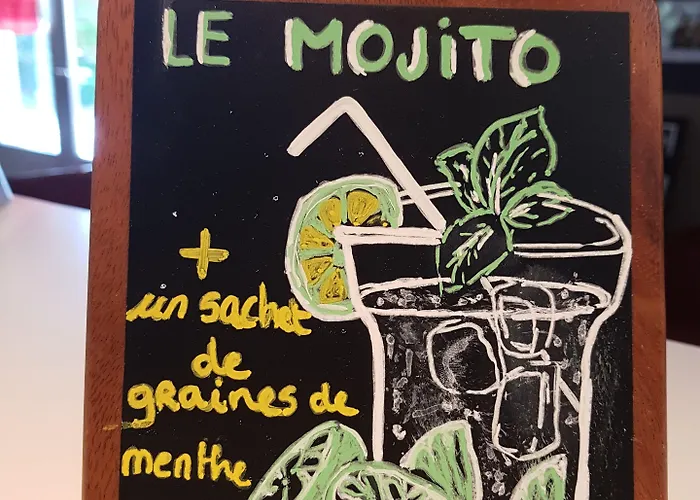 LE MOJiTO
+
un sachet
de
graines de
menthe